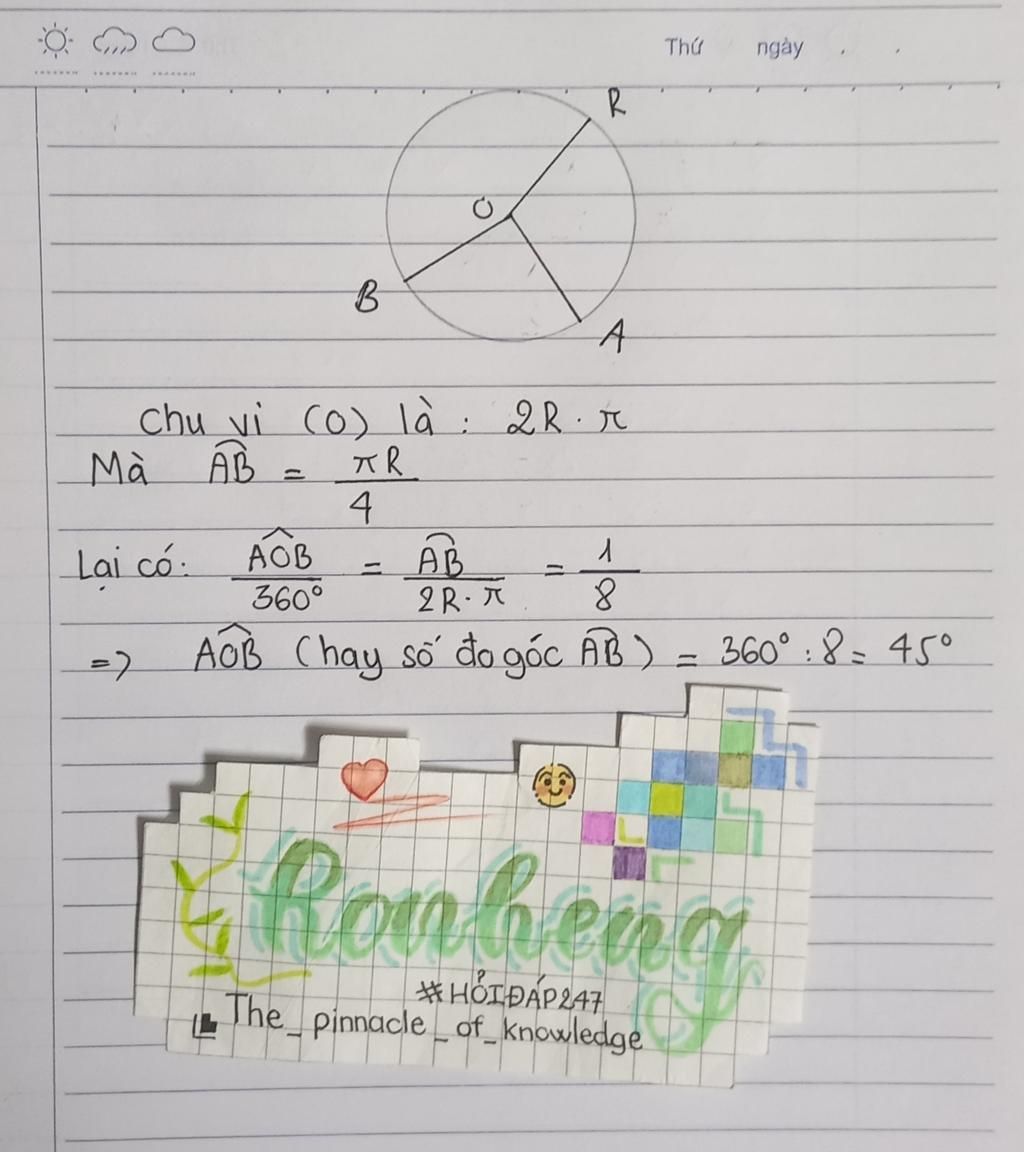 Thứ ngày . .
R
O
B
A
Chu vi (O) là : 2R . π
Mà AB⌢ = πR / 4
Lại có: AÔB / 360° = AB⌢ / 2R . π = 1 / 8
=> AÔB (hay số đo góc AB⌢) = 360° : 8 = 45°
Ronheng
#HỎIĐÁP247
The_pinnacle_of_knowledge